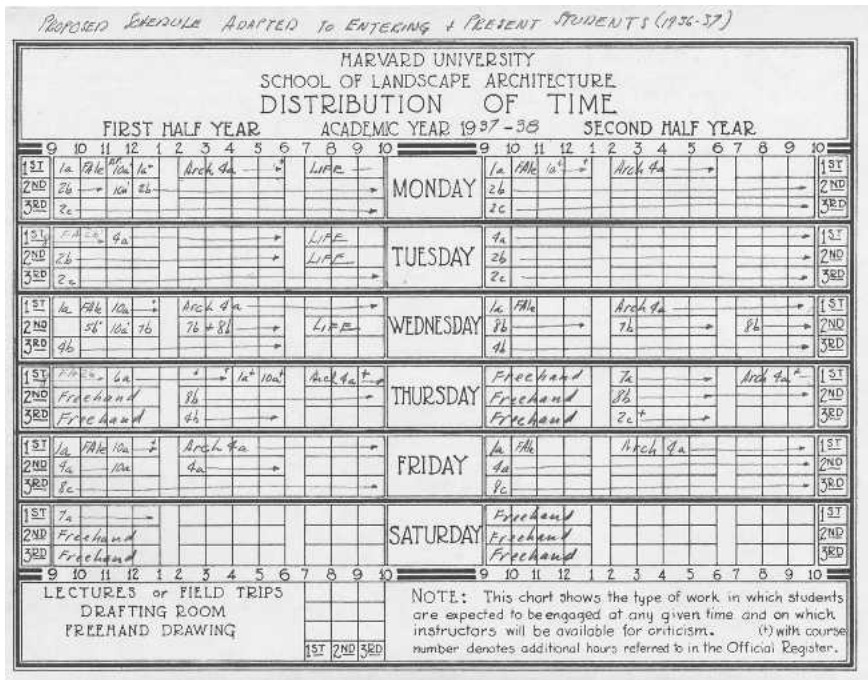 PROPOSED SCHEDULE ADAPTED TO ENTERING + PRESENT STUDENTS (1936-37)
HARVARD UNIVERSITY
SCHOOL OF LANDSCAPE ARCHITECTURE
DISTRIBUTION OF TIME
FIRST HALF YEAR ACADEMIC YEAR 1937-38 SECOND HALF YEAR
9 10 11 12 1 2 3 4 5 6 7 8 9 10 9 10 11 12 1 2 3 4 5 6 7 8 9 10
1ST 1a 10a 1a+ Arch 4a LIFE 1a 1a+ Arch 4a 1ST
2ND 2b 10a 2b MONDAY 2b 2ND
3RD 2c 2c 3RD
1ST 4a LIFE 4a 1ST
2ND 2b LIFE TUESDAY 2b 2ND
3RD 2c 2c 3RD
1ST 1a 10a Arch 4a 1a Arch 4a 1ST
2ND 5b 10a 7b 7b + 8b LIFE WEDNESDAY 8b 7b 8b 2ND
3RD 4b 4b 3RD
1ST 6a 1a+ 10a+ Arch 4a+ Freehand 7a Arch 4a+ 1ST
2ND Freehand 8b THURSDAY Freehand 8b 2ND
3RD Freehand 4b Freehand 2c+ 3RD
1ST 1a 10a Arch 4a 1a Arch 4a 1ST
2ND 4a 10a 4a FRIDAY 4a 2ND
3RD 8c 8c 3RD
1ST 7a Freehand 1ST
2ND Freehand SATURDAY Freehand 2ND
3RD Freehand Freehand 3RD
9 10 11 12 1 2 3 4 5 6 7 8 9 10 9 10 11 12 1 2 3 4 5 6 7 8 9 10
LECTURES or FIELD TRIPS
DRAFTING ROOM
FREEHAND DRAWING
1ST 2ND 3RD
NOTE: This chart shows the type of work in which students
are expected to be engaged at any given time and on which
instructors will be available for criticism. (+) with course
number denotes additional hours referred to in the Official Register.